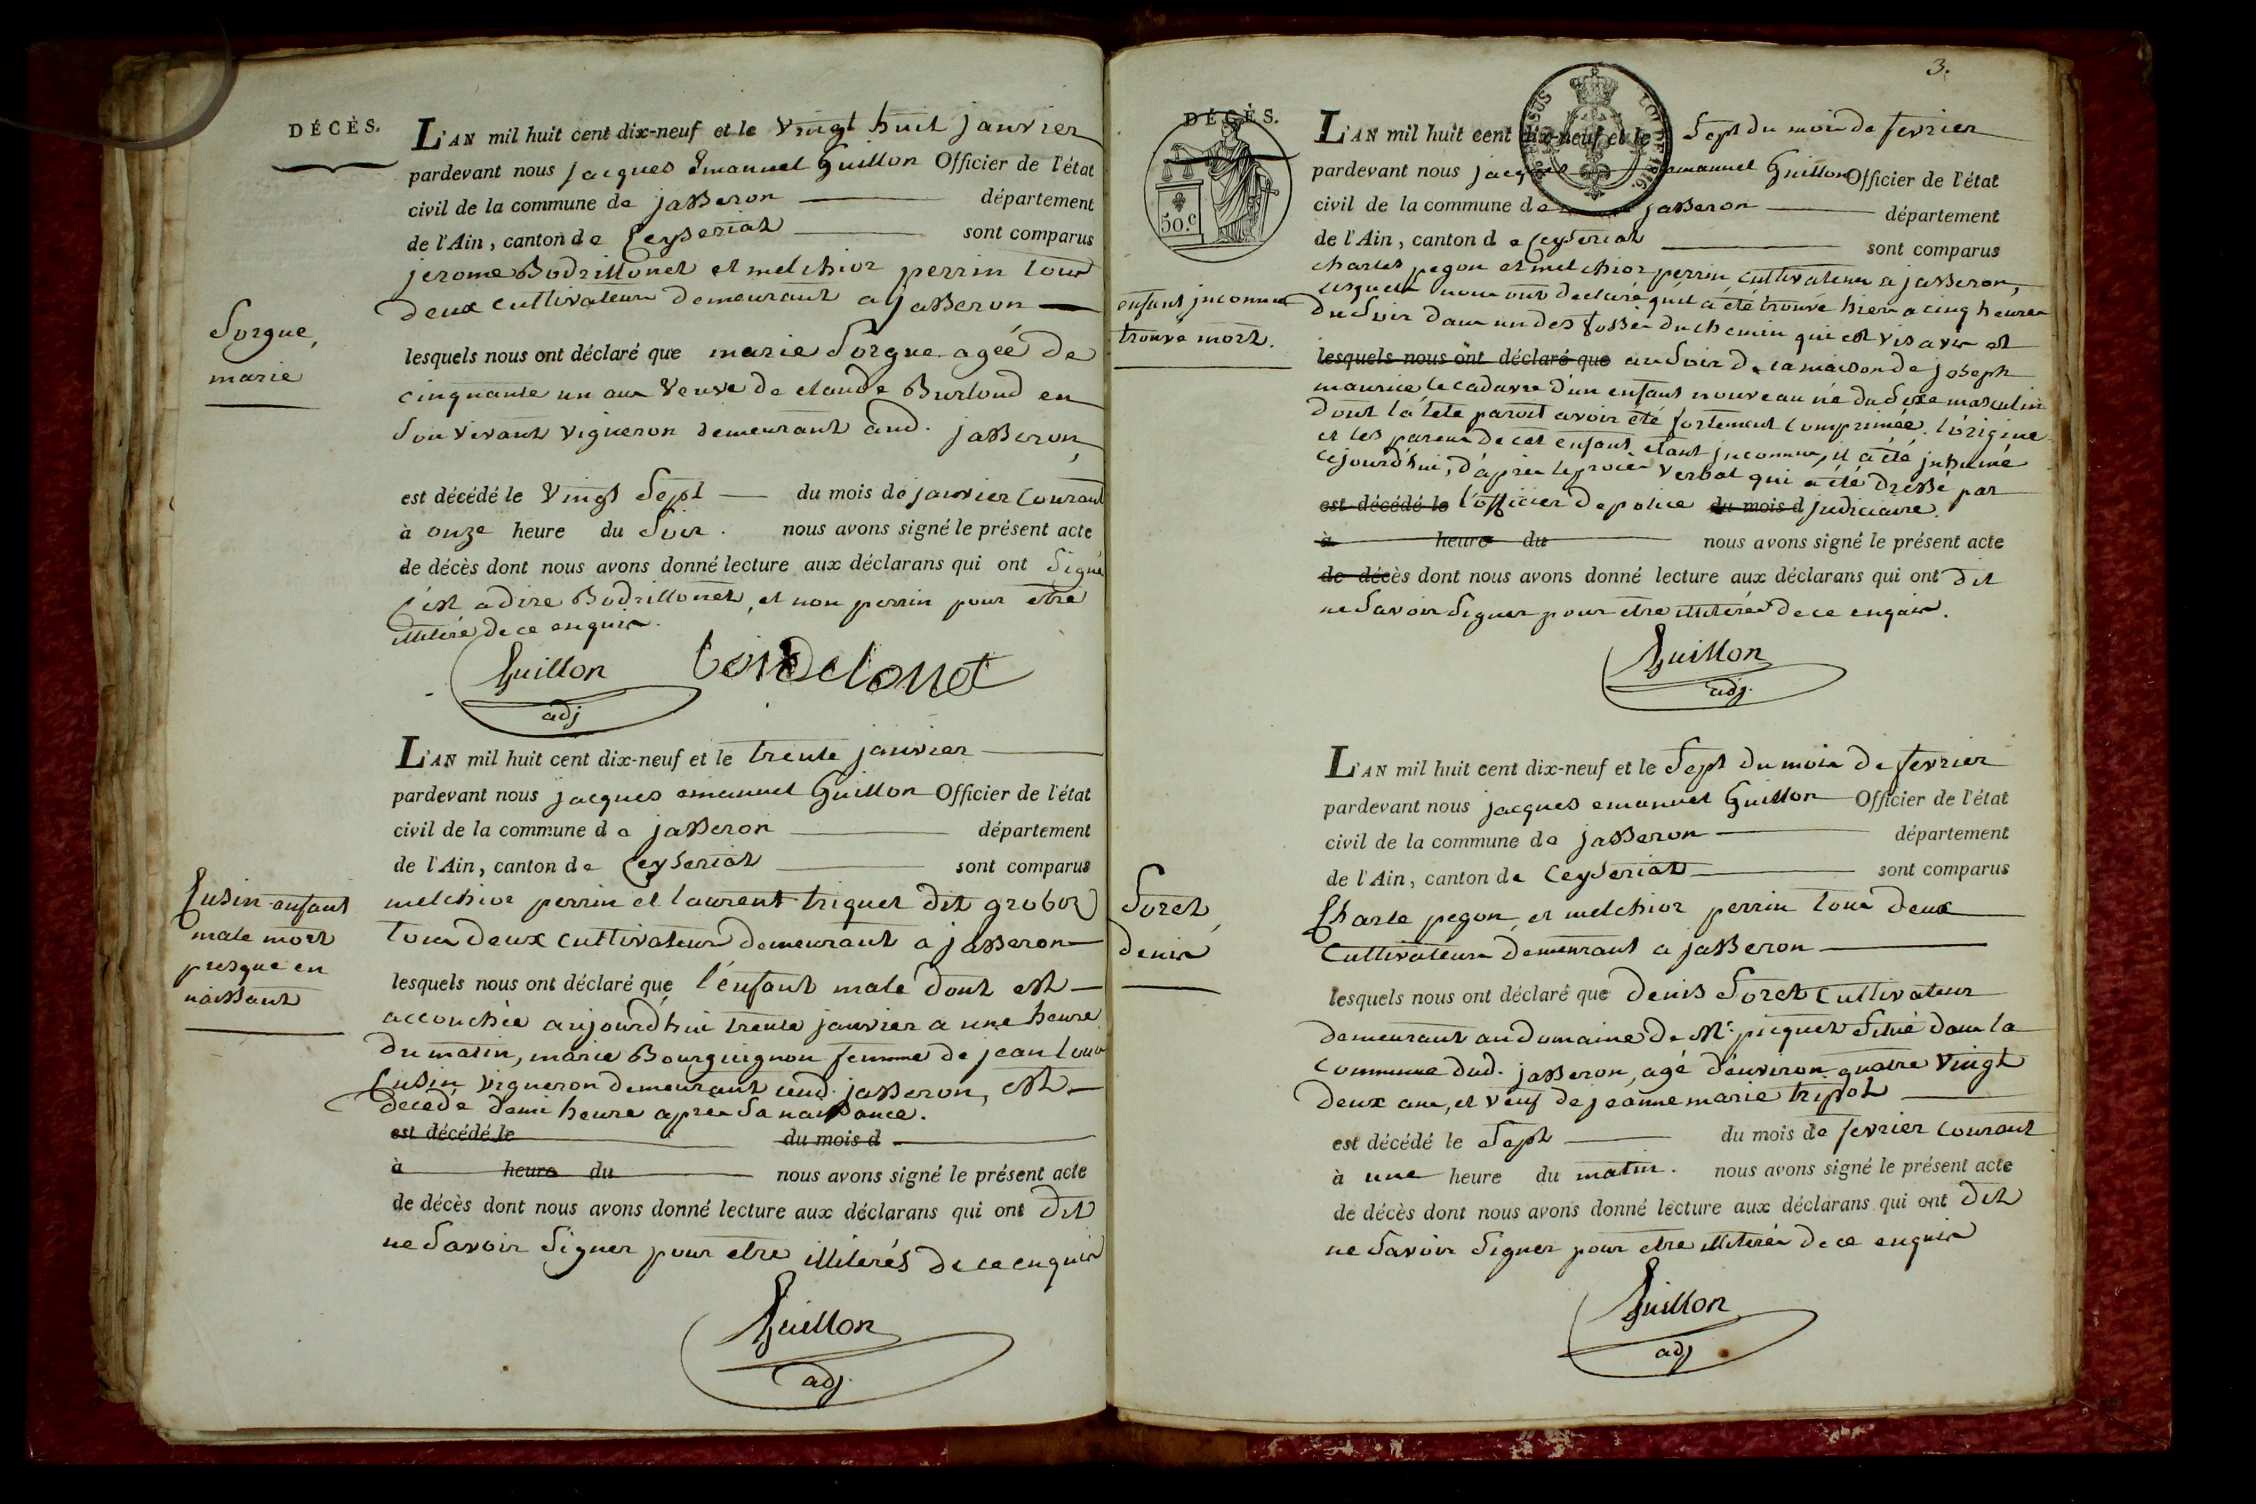 DÉCÈS.
L'AN mil huit cent dix-neuf et le vingt huit janvier
pardevant nous jacques Emanuel Guillon Officier de l'état
civil de la commune de jasseron département
de l'Ain, canton de Ceyseriat sont comparus
jerome Bodrillonet et melchior perrin tous
deux cultivateurs demeurant a jasseron
Sorgue,
marie
lesquels nous ont déclaré que marie Sorgue agée de
cinquante un ans veuve de claude Burloud en
Son vivant vigneron demeurant aud. jasseron,
est décédé le vingt Sept du mois de janvier Courant
à onze heure du Soir. nous avons signé le présent acte
de décès dont nous avons donné lecture aux déclarans qui ont Signé
C'est adire Bodrillonet, et non perrin pour etre
illiteré de ce enquis.
Guillon
adj
L'AN mil huit cent dix-neuf et le trente janvier
pardevant nous jacques emanuel Guillon Officier de l'état
civil de la commune de jasseron département
de l'Ain, canton de Ceyseriat sont comparus
Cusin enfant
male mort
presque en
naissant
melchior perrin et laurent triquet dit groboz
tous deux cultivateurs demeurant a jasseron
lesquels nous ont déclaré que l'énfant male dont est
accouchée aujourdhui trente janvier a une heure
du matin, marie Bourguignon femme de jean louis
Cusin vigneron demeurant aud. jasseron, est
decedé demi heure après Sa naissance.
est décédé le du mois d
à heure du nous avons signé le présent acte
de décès dont nous avons donné lecture aux déclarans qui ont dit
ne Savoir Signer pour etre illiterés de ce enquis
Guillon
adj.
3.
DÉCÈS.
50.c
LOI DE 1816.
L'AN mil huit cent dix-neuf et le Sept du mois de fevrier
pardevant nous jacques emanuel Guillon Officier de l'état
civil de la commune de jasseron département
de l'Ain, canton de Ceyseriat sont comparus
charles pegon et melchior perrin cultivateurs a jasseron,
lesquels nous ont declaré quil a été trouvé hier a cinq heures
enfant inconnu
trouvé mort.
du Soir dans un des fossés du chemin qui est vis a vis et
lesquels nous ont déclaré que au Soir de la maison de joseph
maurice le cadavre d'un enfant nouveau né du Sexe masculin
dont la tete paroit avoir été fortement comprimée. l'origine
et les parens de cet enfant étant inconnus, il a été inhumé
cejourd'hui, d'après le procès verbal qui a été dressé par
est décédé le l'officier de police du mois d judiciaire.
à heure du nous avons signé le présent acte
de décès dont nous avons donné lecture aux déclarans qui ont dit
ne Savoir Signer pour etre illiterés de ce enquis.
Guillon
adj.
L'AN mil huit cent dix-neuf et le Sept du mois de fevrier
pardevant nous jacques emanuel Guillon Officier de l'état
civil de la commune de jasseron département
de l'Ain, canton de Ceyseriat sont comparus
Soret,
denis
Charle pegon, et melchior perrin tous deux
Cultivateurs demeurant a jasseron
lesquels nous ont déclaré que denis Soret Cultivateur
demeurant au domaine de Mr. picquet Situé dans la
Commune dud. jasseron, agé d'environ quatre vingt
deux ans, et veuf de jeanne marie tripot
est décédé le Sept du mois de fevrier Courant
à une heure du matin. nous avons signé le présent acte
de décès dont nous avons donné lecture aux déclarans qui ont dit
ne Savoir Signer pour etre illiterés de ce enquis
Guillon
adj